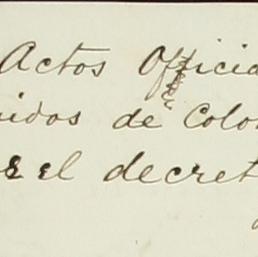 Actos Oficia
idos de Colo
el decret